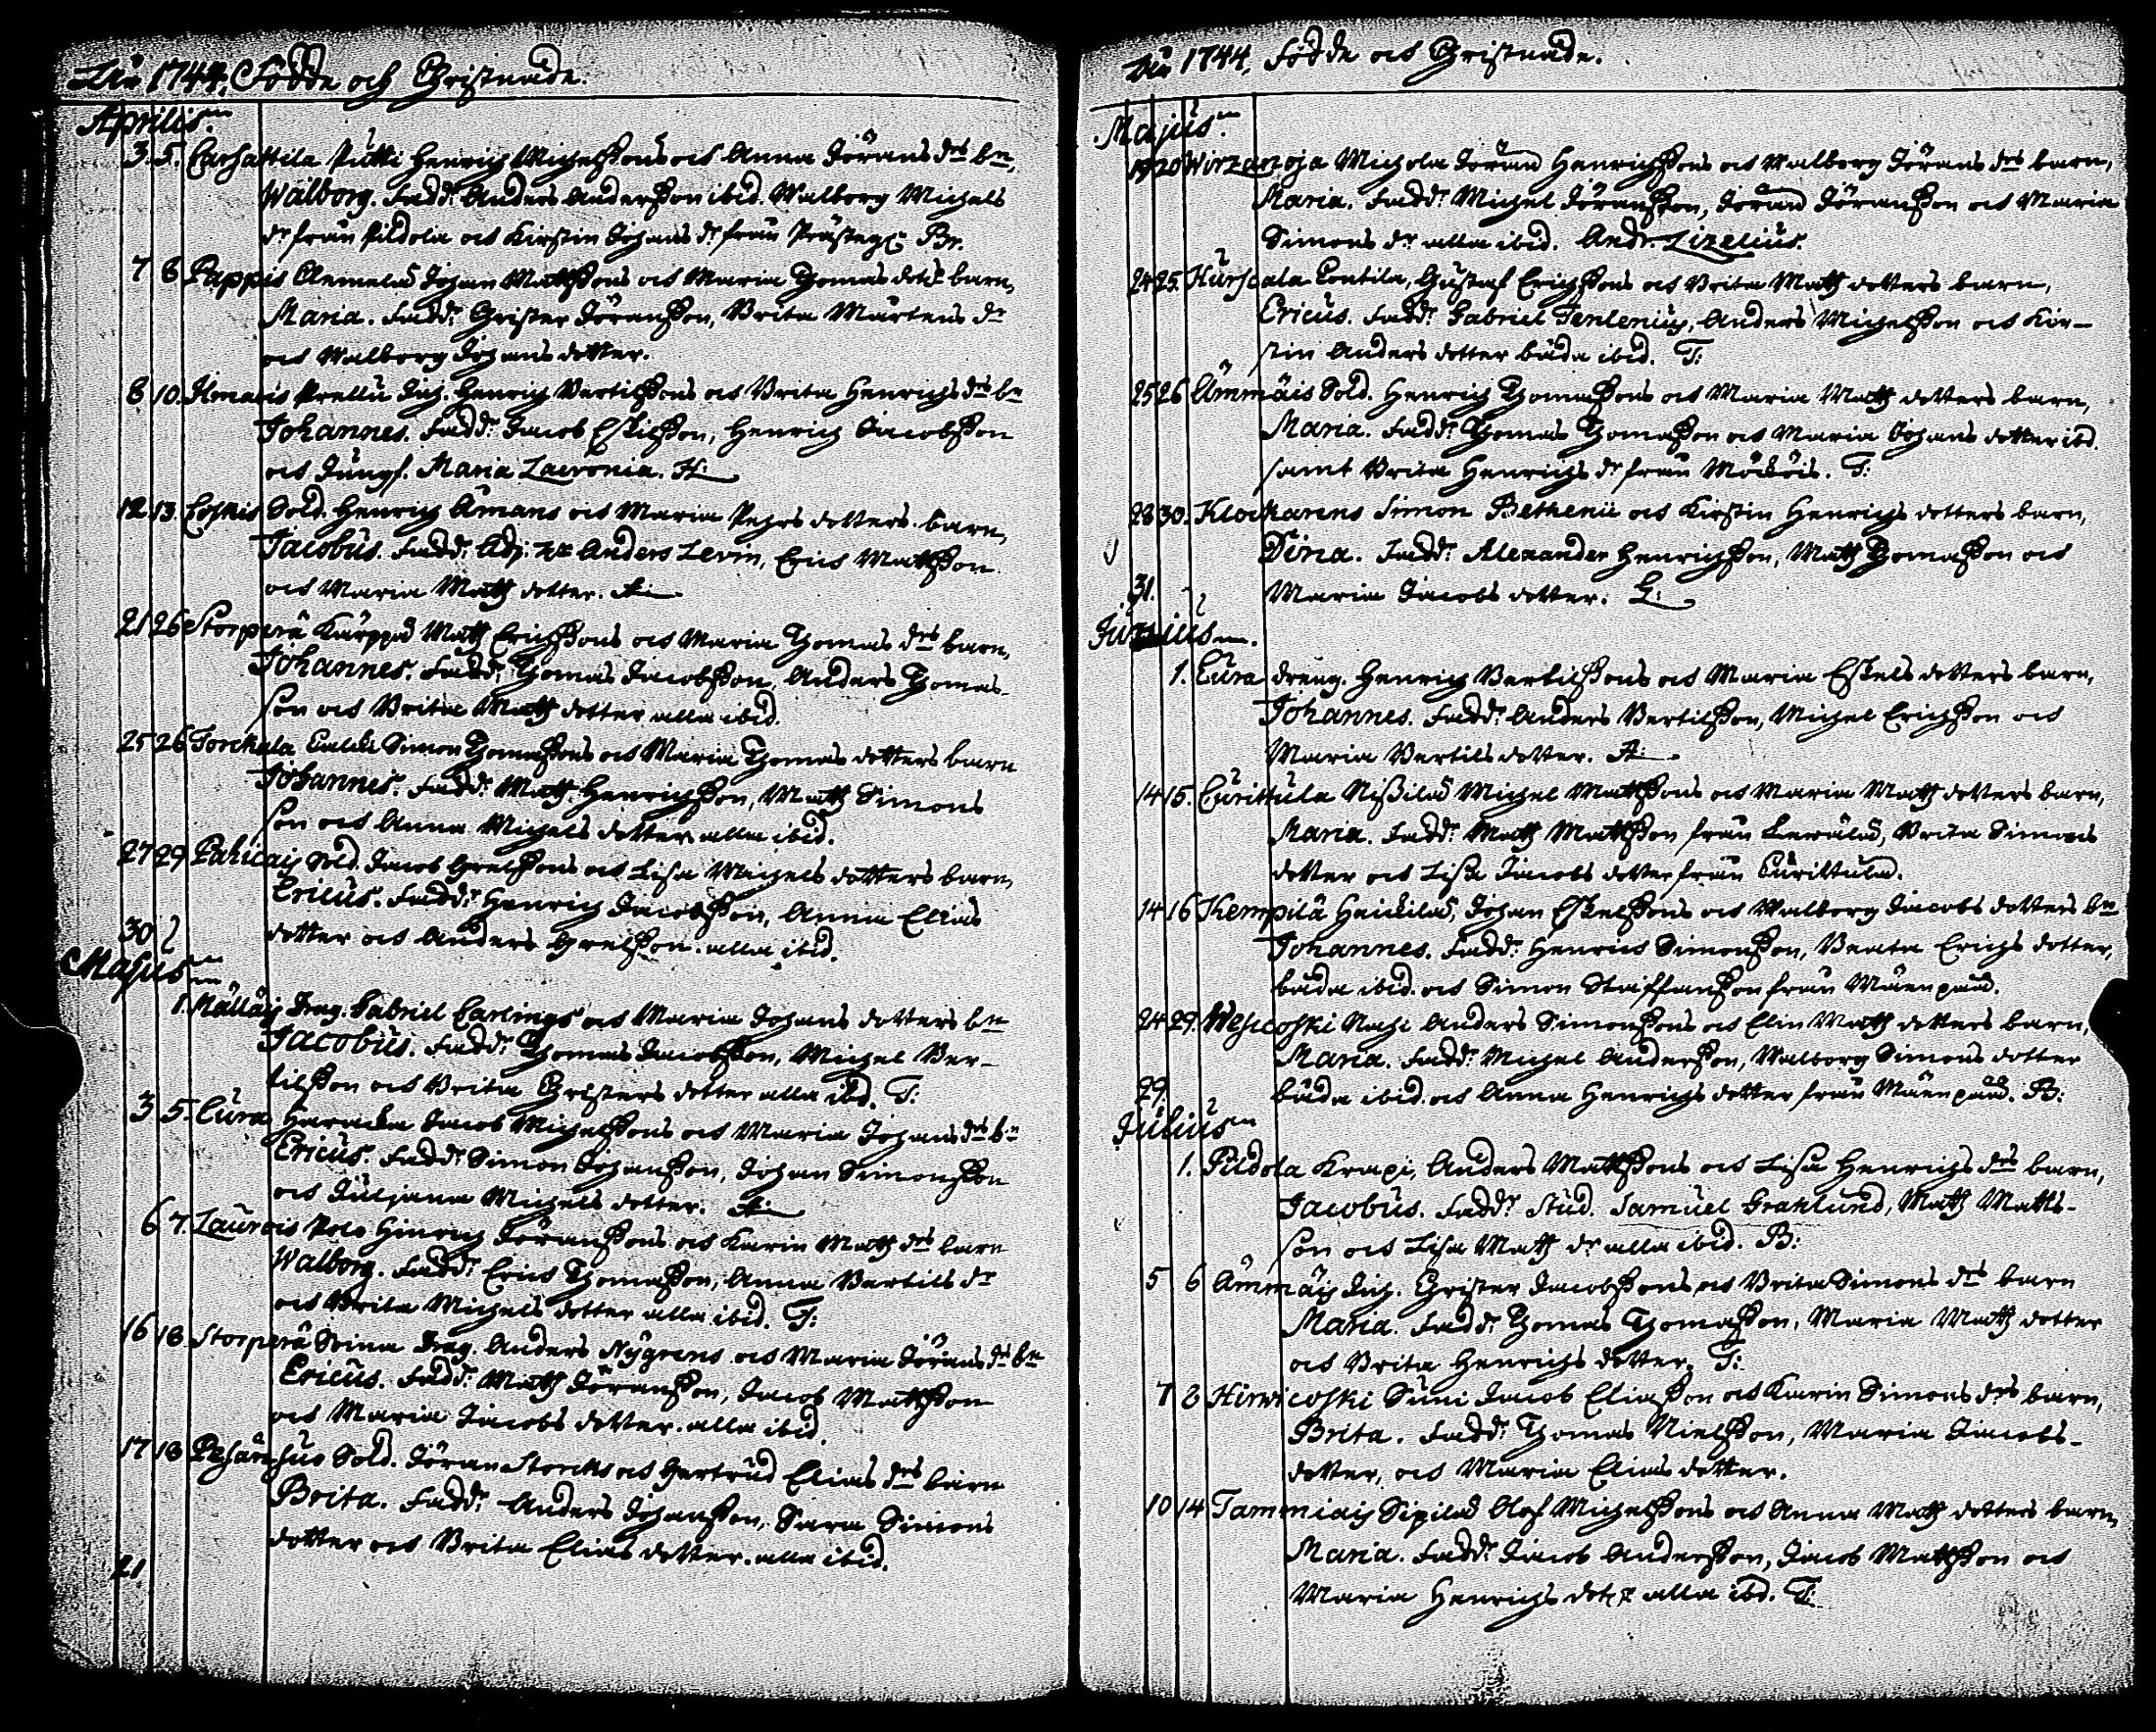 År 1744. Födde och Christnade.
Aprilis.
3. 5. Carhattila Putti Henrich Michelssons och Anna Jörans drs bn,
Walborg. Fadd: Anders Andersson ibid. Walborg Michels
dr från Pildola och Kirstin Johans dr från Prästeg: Br.
7 8 Pappis Clemelä Johan Mattssons och Maria Thomas dotrs barn,
Maria. Fadd: Christer Jöransson, Brita Mårtens dr
och Walborg Johans dotter.
8 10. Ilmaris Prellu Henrich Bertilssons och Brita Henrichs drs bn
Johannes. Fadd: Jacob Eskilsson, Henrich Jacobsson
och Jungf. Maria Laevonia. H:
12 13. Coskis Sold. Henrich Åmans och Maria Pehrs dotters barn,
Jacobus. Fadd: Adj: Anders Levin, Erics Mattsson
och Maria Matth dotter. A:
21 26 Storperä Kärppä Matth Erichssons och Maria Thomas drs barn,
Johannes. Fadd: Thomas Jacobsson, Anders Thomas-
son och Brita Matth dotter alla ibid.
25 26 Torckala Simon Thomassons och Maria Thomas dotters barn
Johannes. Fadd: Matth Henrichsson, Matth Simons
son och Anna Michels dotter alla ibid.
27 29 Pahicais Sold. Jacob Grelssons och Lisa Michels dotters barn,
Ericus. Fadd: Henrich Jacobsson, Anna Elias
dotter och Anders Grelsson. alla ibid.
30
Majus
1. Mälläis Drag. Gabriel Carlings och Maria Johans dotters bn
Jacobus. Fadd: Thomas Jacobsson, Michel Ber-
tilsson och Brita Christers dotter alla ibd. T:
3. 5. Cura Haracka Jacob Michelssons och Maria Johans drs bn
Ericus. Fadd: Simon Johansson, Johan Simonsson
och Juljana Michels dotter. A:
6 7. Laurois Hinrich Jöranssons och Karin Matth drs barn
Walborg. Fadd: Erics Thomasson, Anna Bertils dr
och Brita Michels dotter alla ibid. T:
16 18 Storperä Soina Drag. Anders Nygrens och Maria Jörans drs bn
Ericus. Fadd: Matth Jöransson, Jacob Mattsson
och Maria Jacobs dotter. alla ibid.
17 18 Sold. Jöran Storcks och Gertrud Elias drs barn
Brita. Fadd: Anders Johansson, Sara Simons
dotter och Brita Elias dotter. alla ibid.
21
År 1744. Födde och Christnade.
Majus.
19 20 Wirzanoja Michola Jöran Henrichssons och Walborg Jörans drs barn,
Maria. Fadd: Michel Jöransson, Jöran Jöransson och Maria
Simons dr alla ibid. Andr. Lizelius.
24 25. Kurscala Contila, Gustaf Erichssons och Brita Matth dotters barn,
Ericus. Fadd: Gabriel Tenlenius, Anders Michelsson och Kir-
stin Anders dotter båda ibid. T:
25 26 Ämmäis Sold. Henrich Thomassons och Maria Matth dotters barn,
Maria. Fadd: Thomas Thomasson och Maria Johans dotter ibd.
samt Brita Henrichs dr från Mäköis. T:
28 30. Klockarens Simon Bethenii och Kirstin Henrichs dotters barn,
Dina. Fadd: Alexander Henrichsson, Matth Thomasson och
31. Maria Jacobs dotter. L:
Junius.
1. Cura dreng. Henrich Bertilssons och Maria Eskels dotters barn,
Johannes. Fadd: Anders Bertilsson, Michel Erichsson och
Maria Bertils dotter. A:
14 15. Curittula Nissilä Michel Mattssons och Maria Matth dotters barn,
Maria. Fadd: Matth Mattsson från Leerälä, Brita Simons
dotter och Lisa Jacobs dotter från Curittula.
14 16 Kempilä Heickilä, Johan Eskelssons och Walborg Jacobs dotters bn
Johannes. Fadd: Henrics Simonsson, Beata Erichs dotter,
båda ibid. och Simon Staffansson från Mäenpää.
24 29. Wesicoski Anders Simonssons och Elin Matth dotters barn,
Maria. Fadd: Michel Andersson, Walborg Simons dotter
29. båda ibid. och Anna Henrichs dotter från Mäenpää. B:
Julius
1. Pildola Krapi, Anders Mattssons och Lisa Henrichs drs barn,
Jacobus. Fadd: Stud. Samuel Grahlund, Matth Matts-
son och Lisa Matth dr alla ibid. B:
5 6 Ämmäis Christer Jacobssons och Brita Simons drs barn
Maria. Fadd: Thomas Thomasson, Maria Matth dotter
och Brita Henrichs dotter. T:
7 8 Hirwicoski Suni Jacob Eliasson och Karin Simons drs barn,
Brita. Fadd: Thomas Nielsson, Maria Jacobs-
dotter, och Maria Elias dotter.
10 14 Tammiais Sipilä Olof Michelssons och Anna Matth dotters barn,
Maria. Fadd: Jacob Andersson, Jacob Mattsson och
Maria Henrichs dotr alla ibd. T: